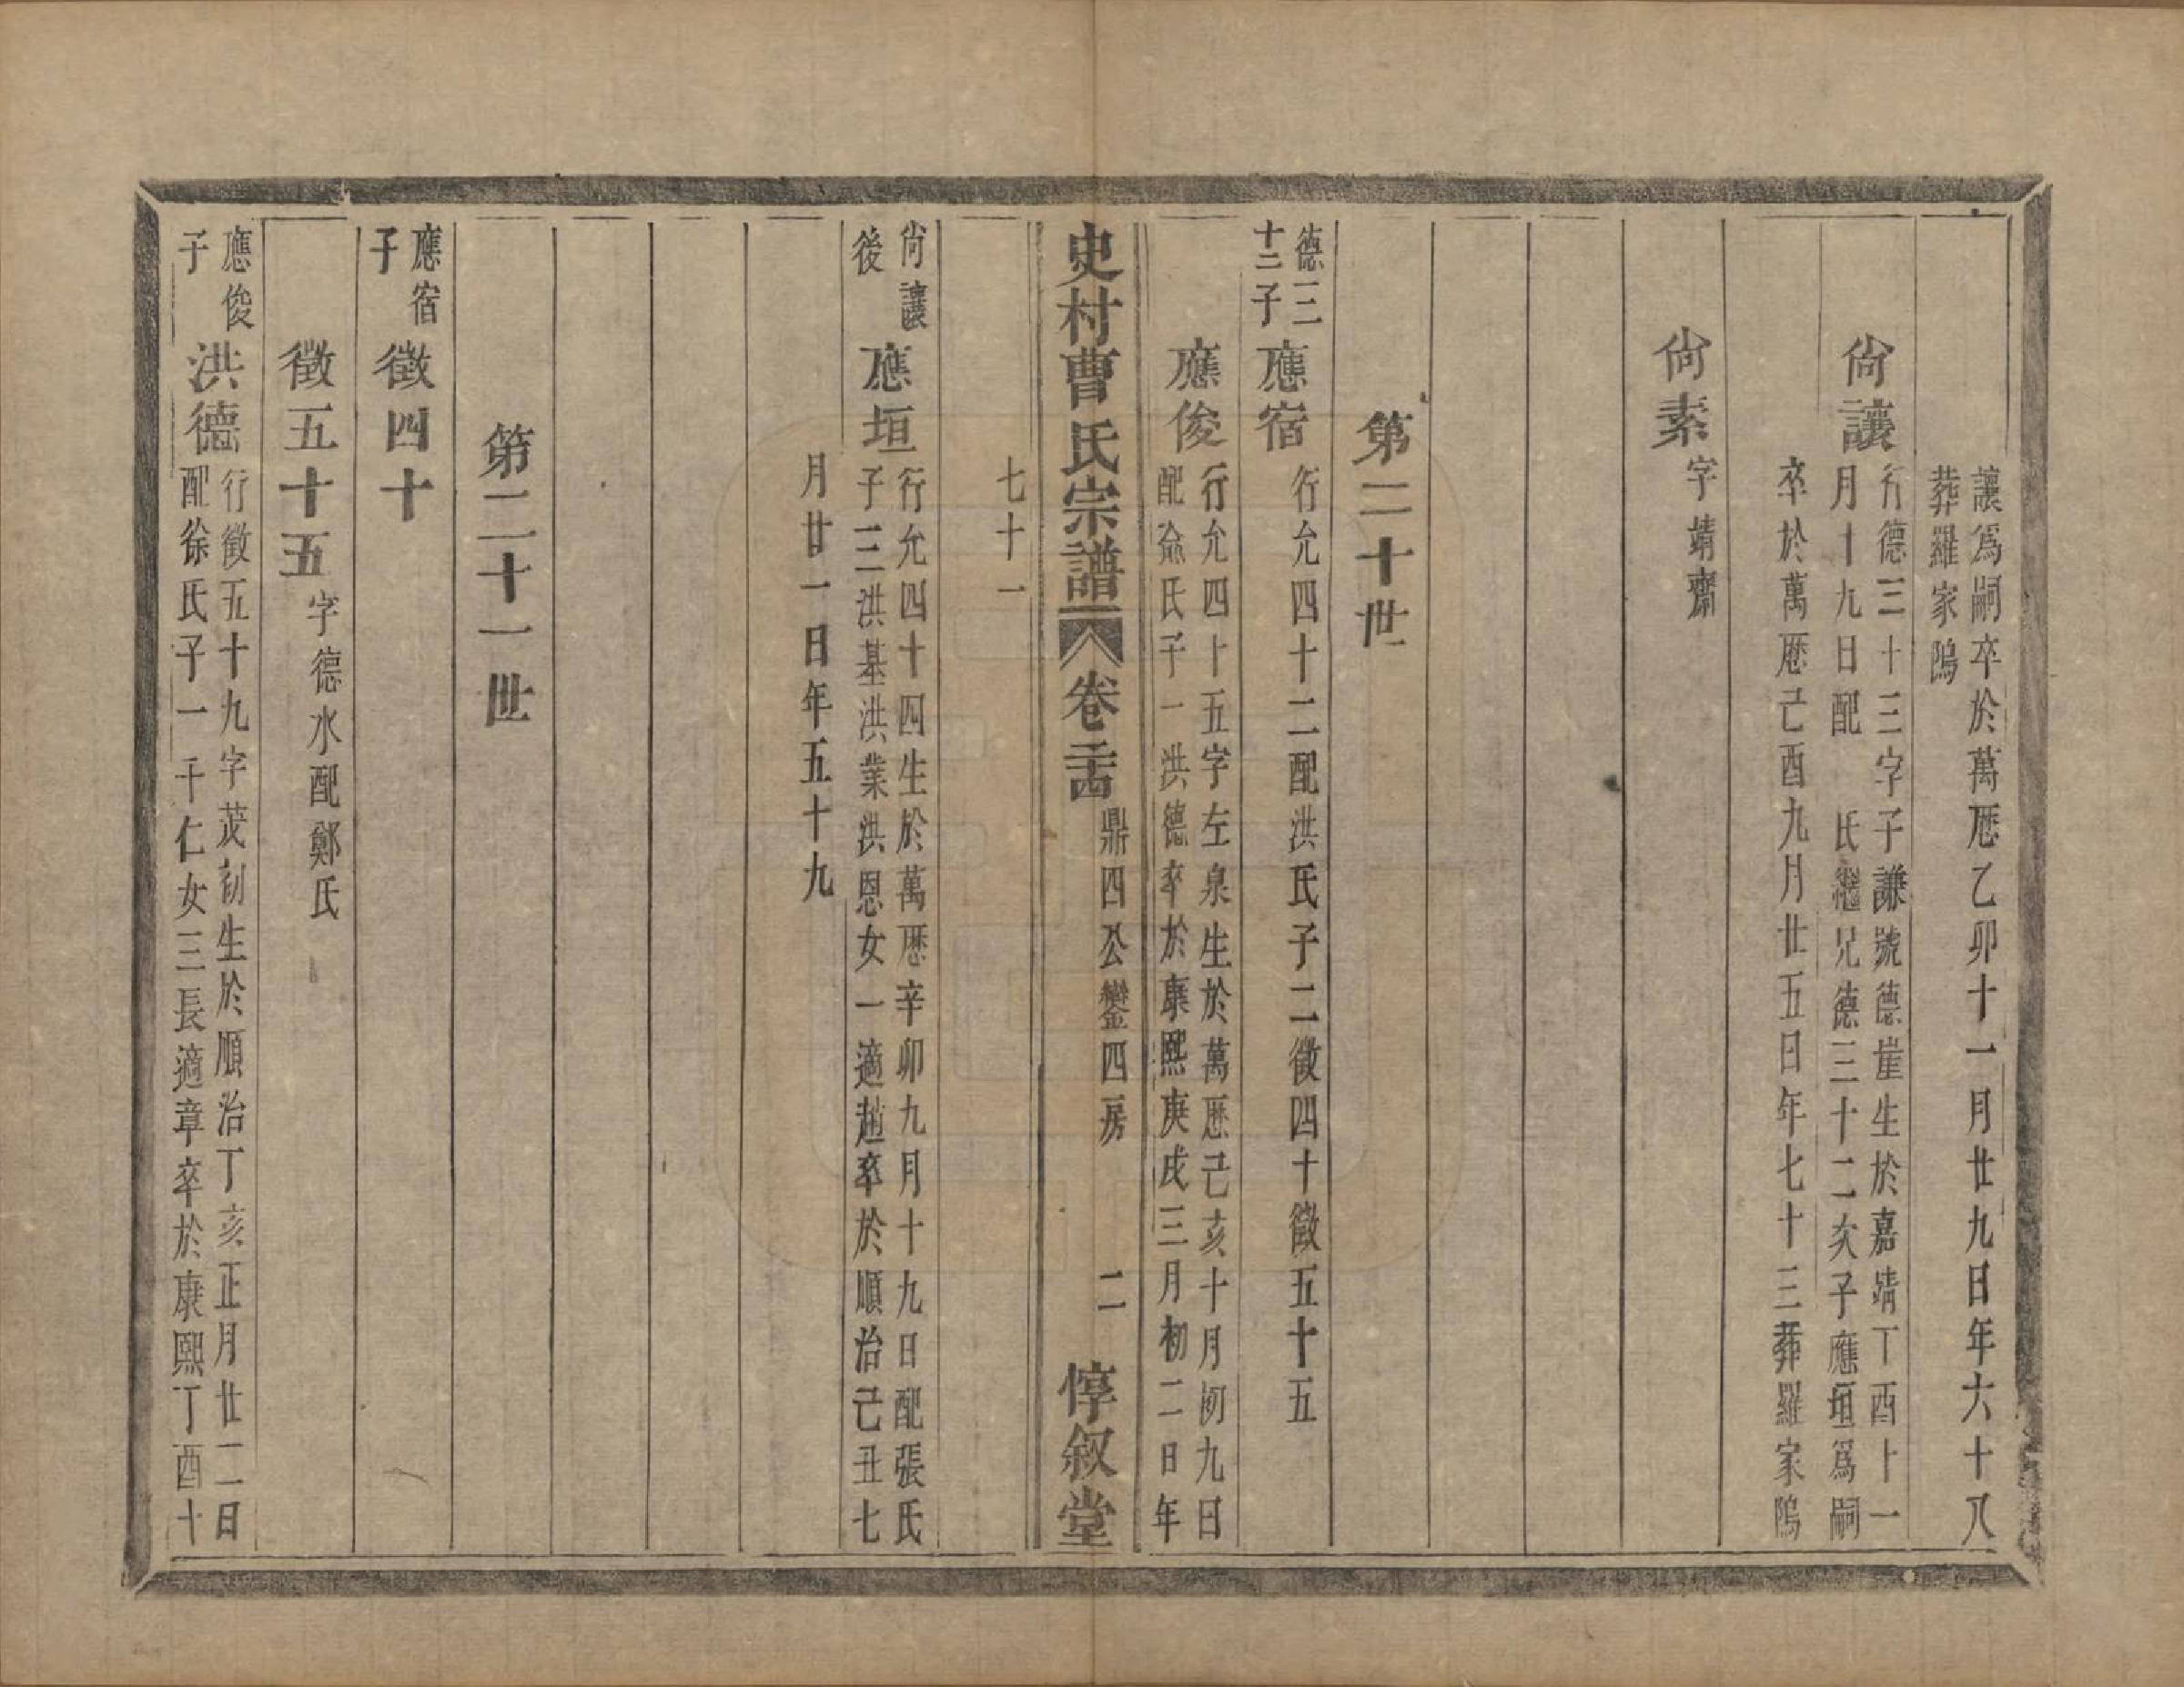 讓爲嗣卒於萬厯乙卯十一月廿九日年六十八
葬羅家隖
尙讓
行德三十三字子謙號德崖生於嘉靖丁酉十一
月十九日配　氏繼兄德三十二次子應垣爲嗣
卒於萬厯己酉九月廿五日年七十三葬羅家隖
尙素
字靖齋
第二十世
德三
十二子
應宿
行允四十二配洪氏子二徵四十徵五十五
應俊
行允四十五字左泉生於萬厯己亥十月初九日
配兪氏子一洪德卒於康熙庚戌三月初二日年
史村曹氏宗譜
卷二十四
鼎四公鑾四房
二
惇叙堂
七十一
尙讓
後
應垣
行允四十四生於萬厯辛卯九月十九日配張氏
子三洪基洪業洪恩女一適趙卒於順治己丑七
月廿一日年五十九
第二十一世
應宿
子
徵四十
徵五十五
字德水配鄭氏
應俊
子
洪德
行徵五十九字茂初生於順治丁亥正月廿二日
配徐氏子一千仁女三長適章卒於康熙丁酉十